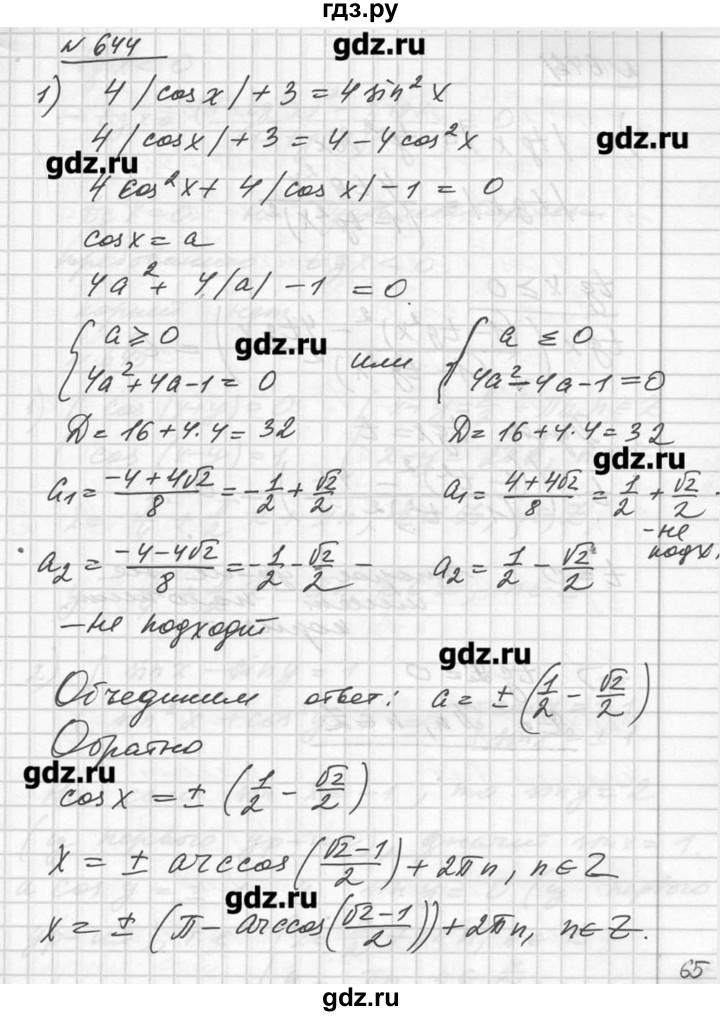 гдз.ру
gdz.ru
№ 644
1) 4|cos x| + 3 = 4 sin² x
4|cos x| + 3 = 4 - 4cos² x
gdz.ru
gdz.ru
4 cos² x + 4|cos x| - 1 = 0
cos x = a
4a² + 4|a| - 1 = 0.
{ a ≥ 0
4a² + 4a - 1 = 0
gdz.ru
или
{ a ≤ 0
4a² - 4a - 1 = 0
Д = 16 + 4·4 = 32
Д = 16 + 4·4 = 32
gdz.ru
a₁ = (-4+4√2)/8 = -1/2 + √2/2
a₁ = (4+4√2)/8 = 1/2 + √2/2
- не подх.
a₂ = (-4-4√2)/8 = -1/2 - √2/2 -
- не подходит
a₂ = 1/2 - √2/2
gdz.ru
Объединим ответ: a = ± (1/2 - √2/2)
Обратно
gdz.ru
cos x = ± (1/2 - √2/2)
x = ± arccos((√2-1)/2) + 2πn, n∈Z
gdz.ru
x = ± (π - arccos((√2-1)/2)) + 2πn, n∈Z.
65
gdz.ru